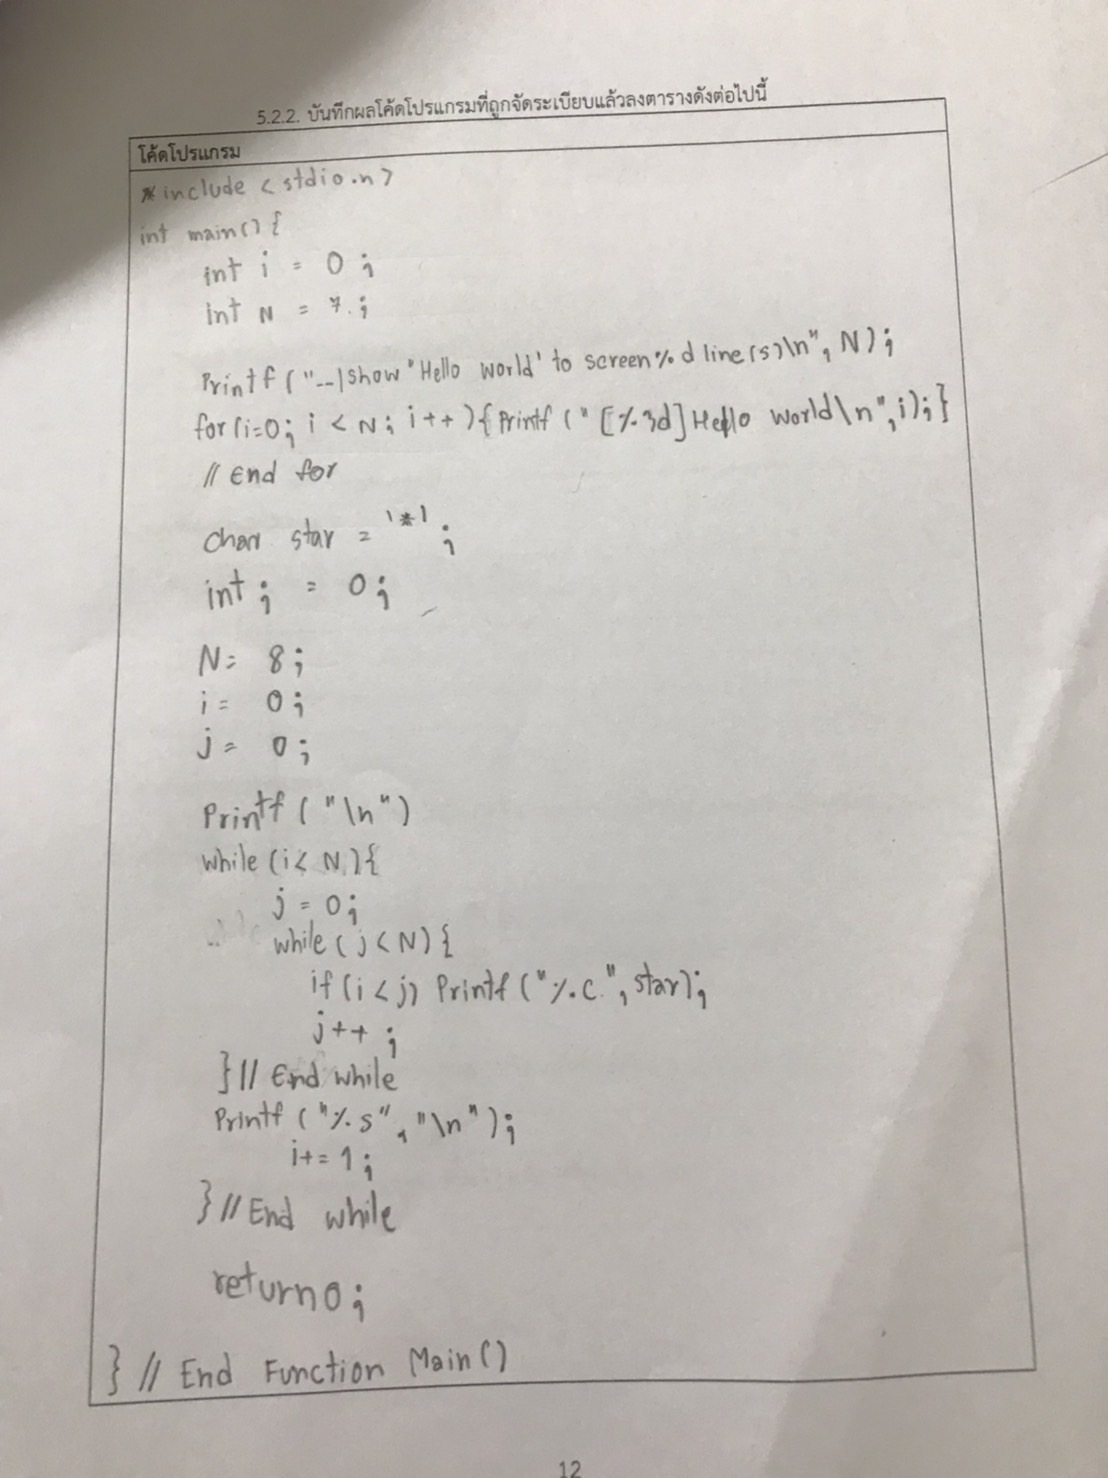 5.2.2. บันทึกผลโค้ดโปรแกรมที่ถูกจัดระเบียบแล้วลงตารางดังต่อไปนี้
โค้ดโปรแกรม
*include <stdio.h>
int main(){
int i = 0;
int N = 7;
Printf("--|show 'Hello world' to screen%d line(s)\n", N);
for(i=0; i < N; i++){Printf("[%3d]Hello world\n",i);}
// End for
char star = '*';
int ; = 0;
N= 8;
i= 0;
j= 0;
Printf("\n")
while(i< N){
j=0;
while(j<N){
if(i<j) Printf("%c",star);
j++;
}// End while
Printf("%s","\n");
i+=1;
}//End while
return0;
} // End Function Main()
12